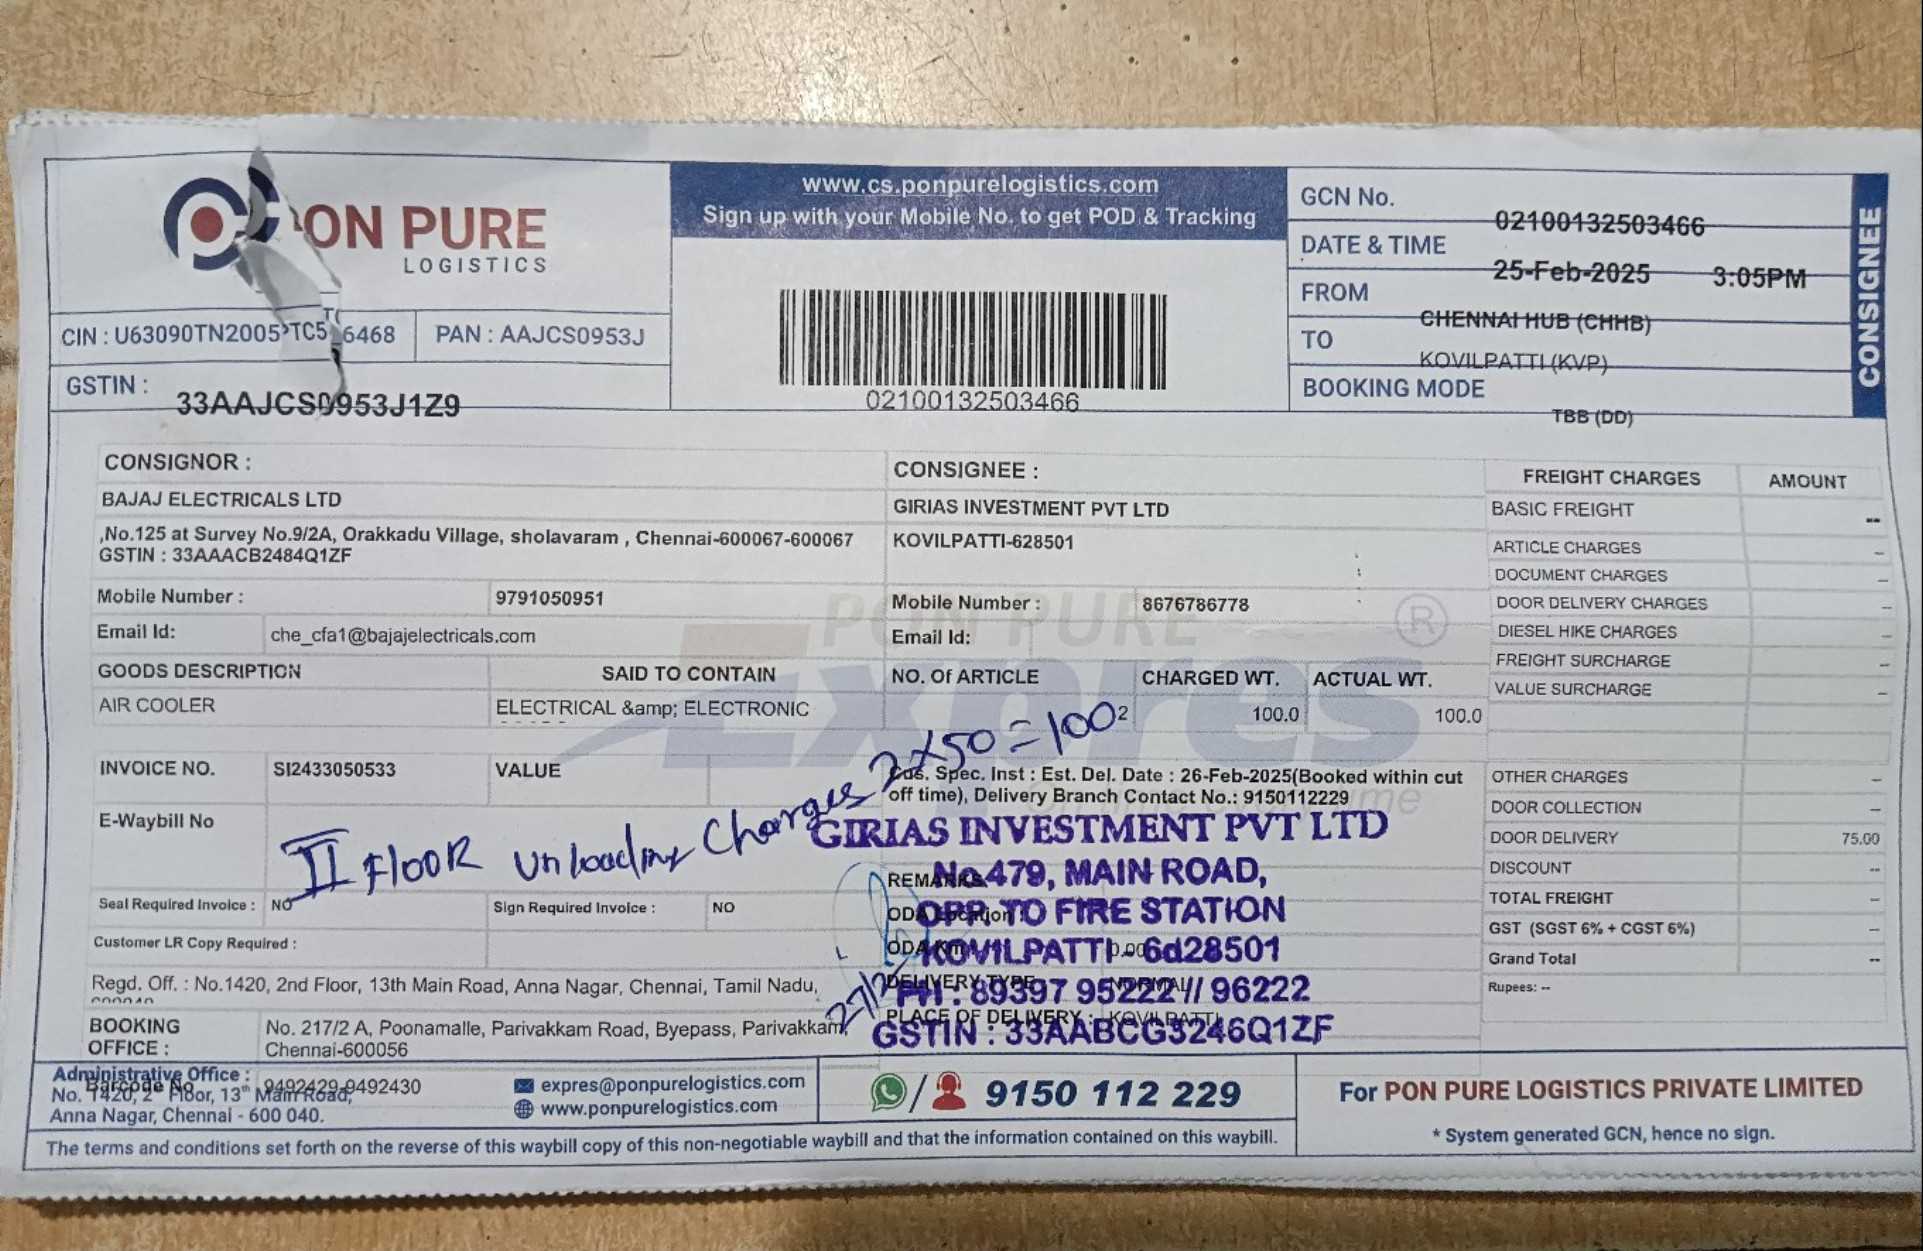 PON PURE
LOGISTICS
CIN : U63090TN2005PTC5 6468
PAN : AAJCS0953J
GSTIN :
33AAJCS0953J1Z9
www.cs.ponpurelogistics.com
Sign up with your Mobile No. to get POD & Tracking
02100132503466
GCN No.
02100132503466
DATE & TIME
25-Feb-2025 3:05PM
FROM
CHENNAI HUB (CHHB)
TO
KOVILPATTI (KVP)
BOOKING MODE
TBB (DD)
CONSIGNEE
CONSIGNOR :
BAJAJ ELECTRICALS LTD
,No.125 at Survey No.9/2A, Orakkadu Village, sholavaram , Chennai-600067-600067
GSTIN : 33AAACB2484Q1ZF
Mobile Number : 9791050951
Email Id: che_cfa1@bajajelectricals.com
CONSIGNEE :
GIRIAS INVESTMENT PVT LTD
KOVILPATTI-628501
Mobile Number : 8676786778
Email Id:
PON PURE
Expres ®
GOODS DESCRIPTION SAID TO CONTAIN NO. Of ARTICLE CHARGED WT. ACTUAL WT.
AIR COOLER ELECTRICAL &amp; ELECTRONIC 2 100.0 100.0
INVOICE NO. SI2433050533 VALUE
E-Waybill No
II Floor unloading Charges 2 x 50 = 100
Cus. Spec. Inst : Est. Del. Date : 26-Feb-2025(Booked within cut
off time), Delivery Branch Contact No.: 9150112229
time
GIRIAS INVESTMENT PVT LTD
No.479, MAIN ROAD,
OPP. TO FIRE STATION
KOVILPATTI - 6d28501
PH : 89397 95222 // 96222
GSTIN : 33AABCG3246Q1ZF
REMARKS
ODA Location :
ODA Km 0.00
DELIVERY TYPE NORMAL
PLACE OF DELIVERY : KOVILPATTI
27/2
Seal Required Invoice : NO Sign Required Invoice : NO
Customer LR Copy Required :
Regd. Off. : No.1420, 2nd Floor, 13th Main Road, Anna Nagar, Chennai, Tamil Nadu,
BOOKING
OFFICE :
No. 217/2 A, Poonamalle, Parivakkam Road, Byepass, Parivakkam,
Chennai-600056
FREIGHT CHARGES AMOUNT
BASIC FREIGHT --
ARTICLE CHARGES --
DOCUMENT CHARGES --
DOOR DELIVERY CHARGES --
DIESEL HIKE CHARGES --
FREIGHT SURCHARGE --
VALUE SURCHARGE --
OTHER CHARGES --
DOOR COLLECTION --
DOOR DELIVERY 75.00
DISCOUNT --
TOTAL FREIGHT --
GST (SGST 6% + CGST 6%) --
Grand Total --
Rupees: --
Administrative Office :
No. 1420, 2nd Floor, 13th Main Road,
Anna Nagar, Chennai - 600 040.
Barcode No 9492429-9492430
expres@ponpurelogistics.com
www.ponpurelogistics.com
9150 112 229
For PON PURE LOGISTICS PRIVATE LIMITED
* System generated GCN, hence no sign.
The terms and conditions set forth on the reverse of this waybill copy of this non-negotiable waybill and that the information contained on this waybill.